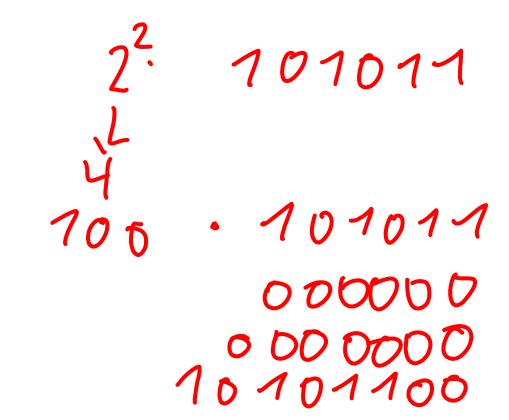 2² · 101011
↓
4
100 · 101011
000000
0000000
10101100